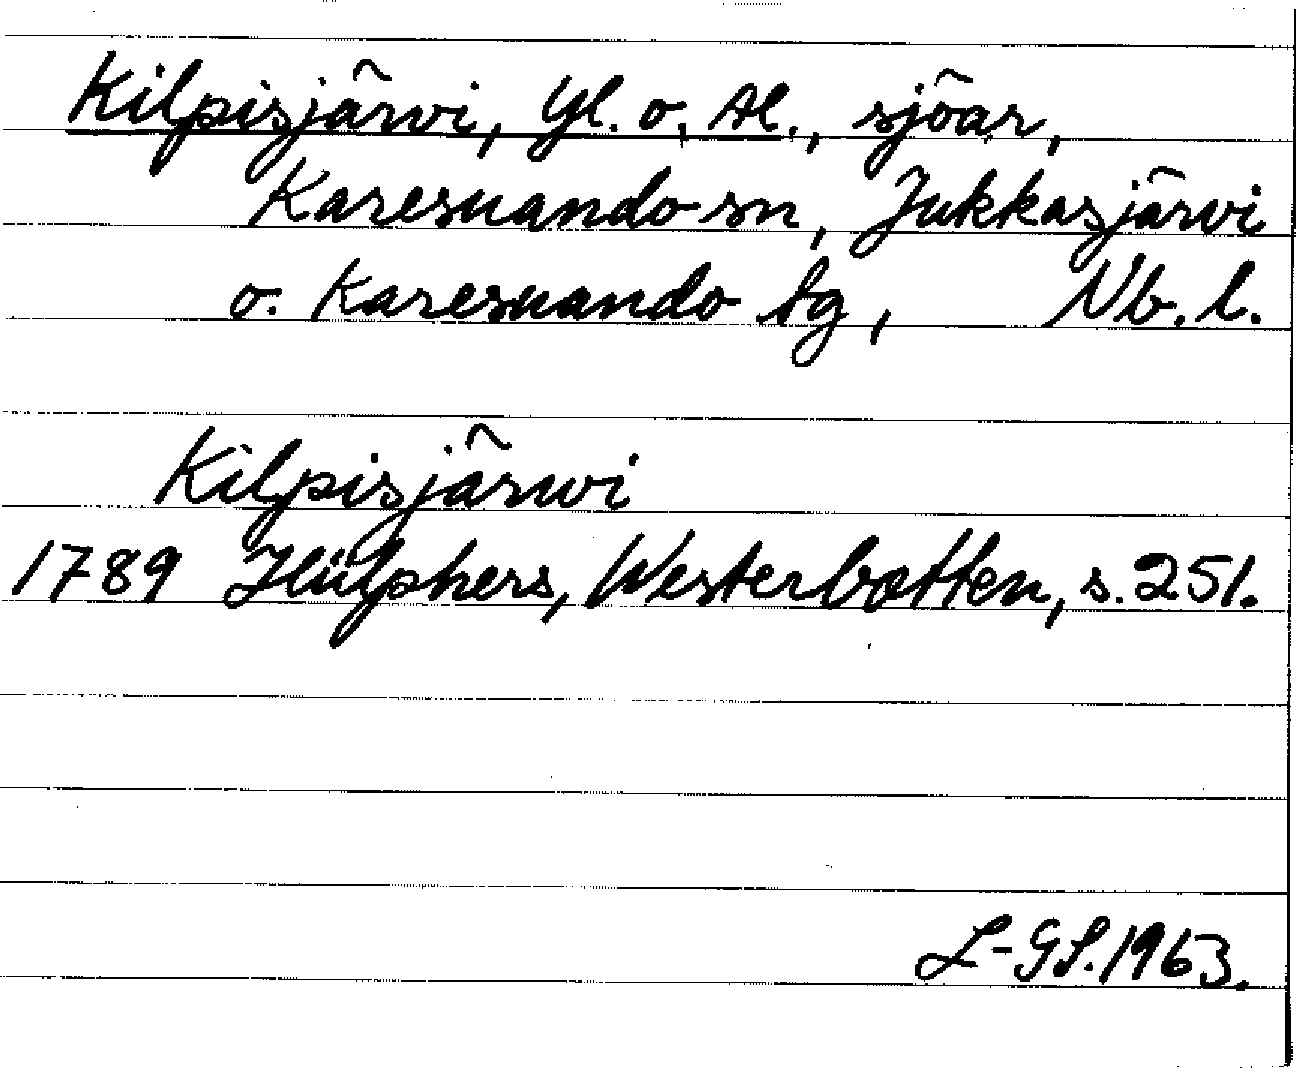 Kilpisjärvi, Yl. o. Al., sjöar,
Karesuando sn, Jukkasjärvi
o. Karesuando tg, Nb. l.
Kilpisjärwi
1789 Hülphers, Westerbotten, s. 251.
L-GS. 1963.